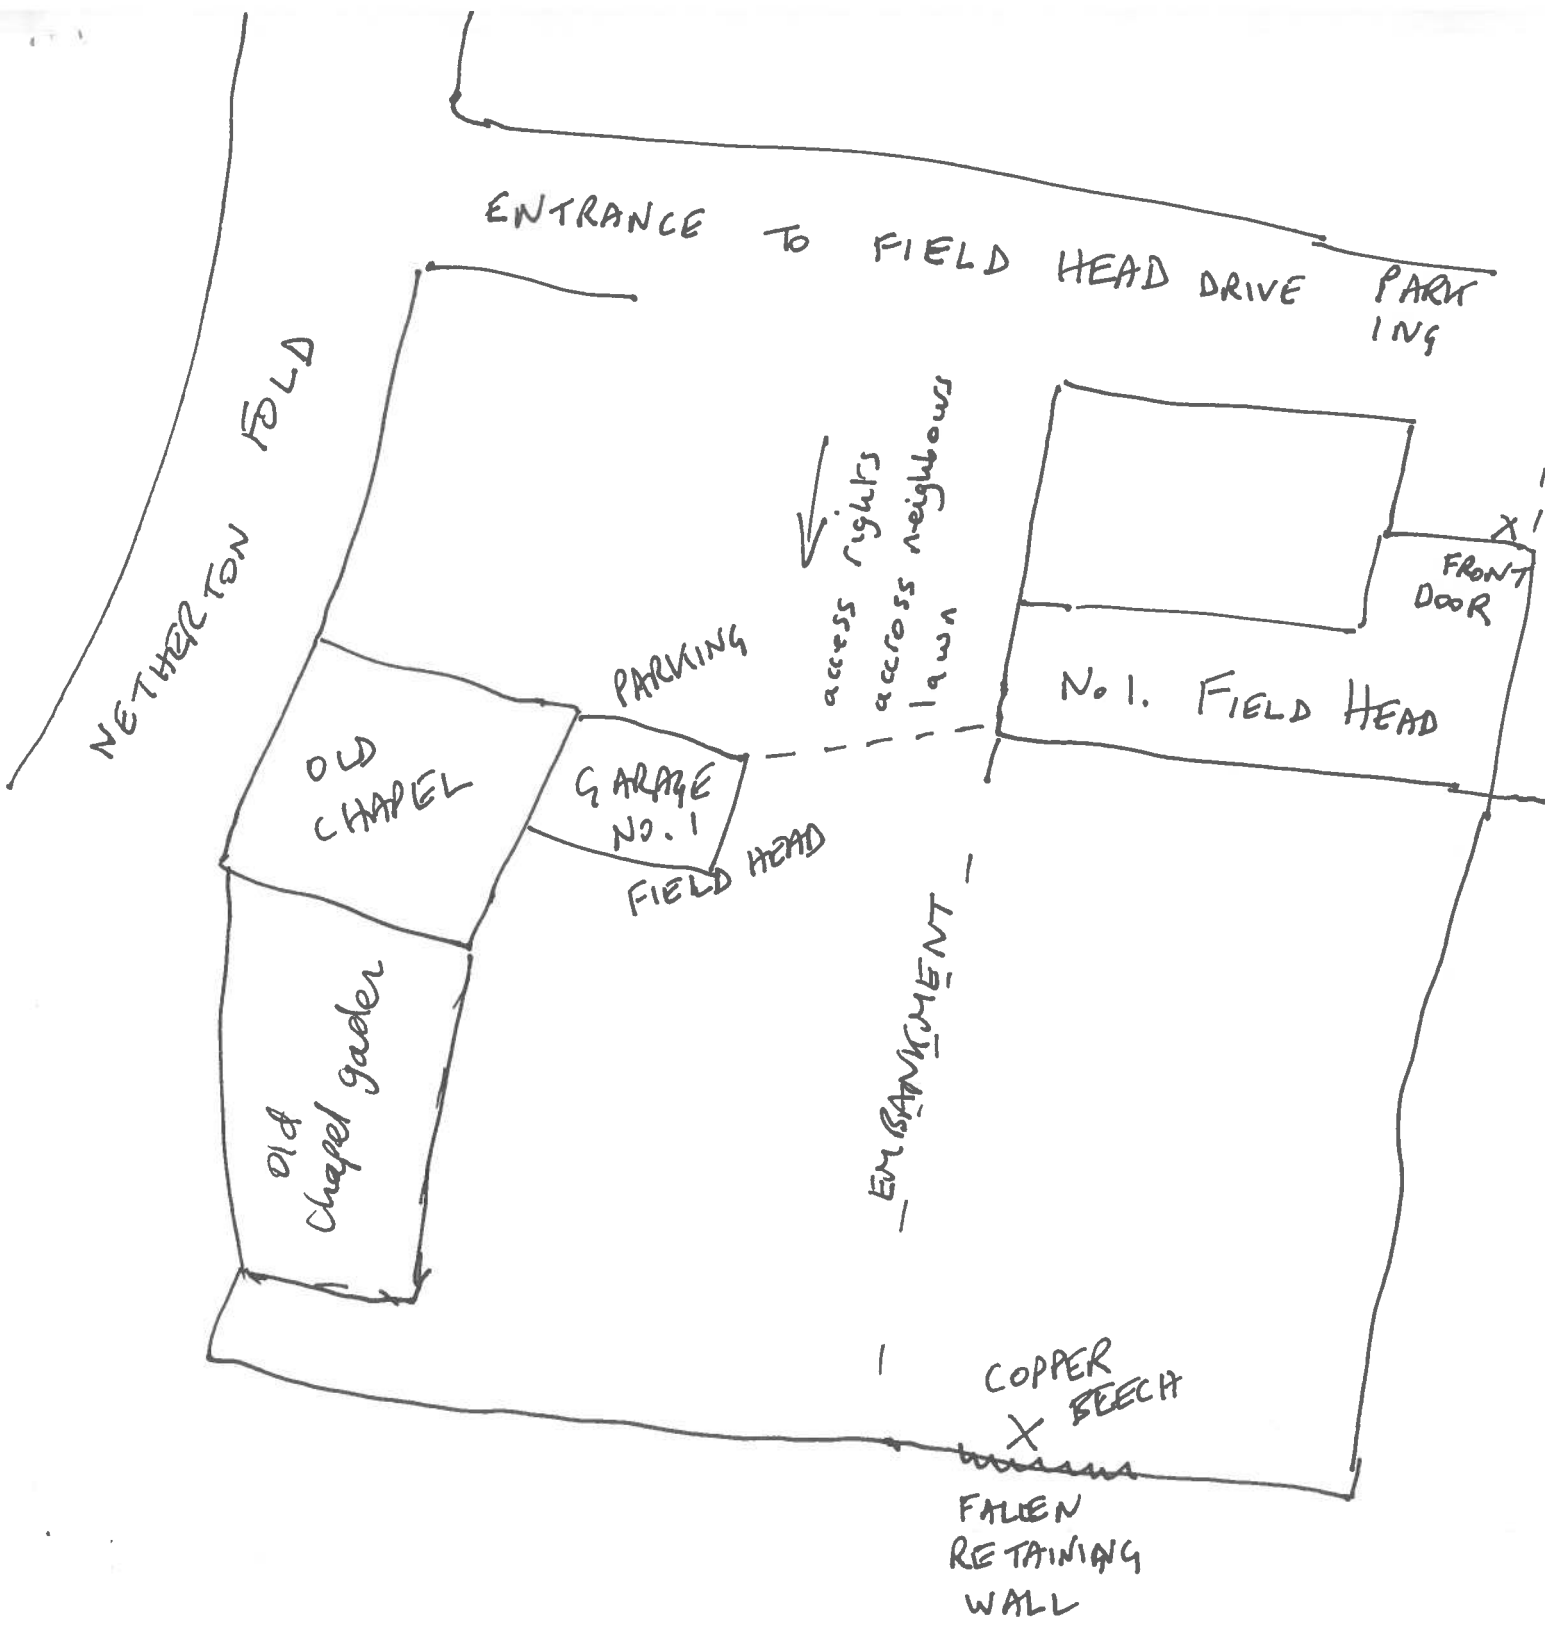 ENTRANCE TO FIELD HEAD DRIVE
PARK
ING
NETHERTON FOLD
access rights
accross neighbours
lawn
FRONT
DOOR
X
No 1. FIELD HEAD
PARKING
OLD
CHAPEL
GARAGE
NO. 1
FIELD HEAD
EMBANKMENT
Old
chapel gader
COPPER
BEECH
X
FALLEN
RETAINING
WALL